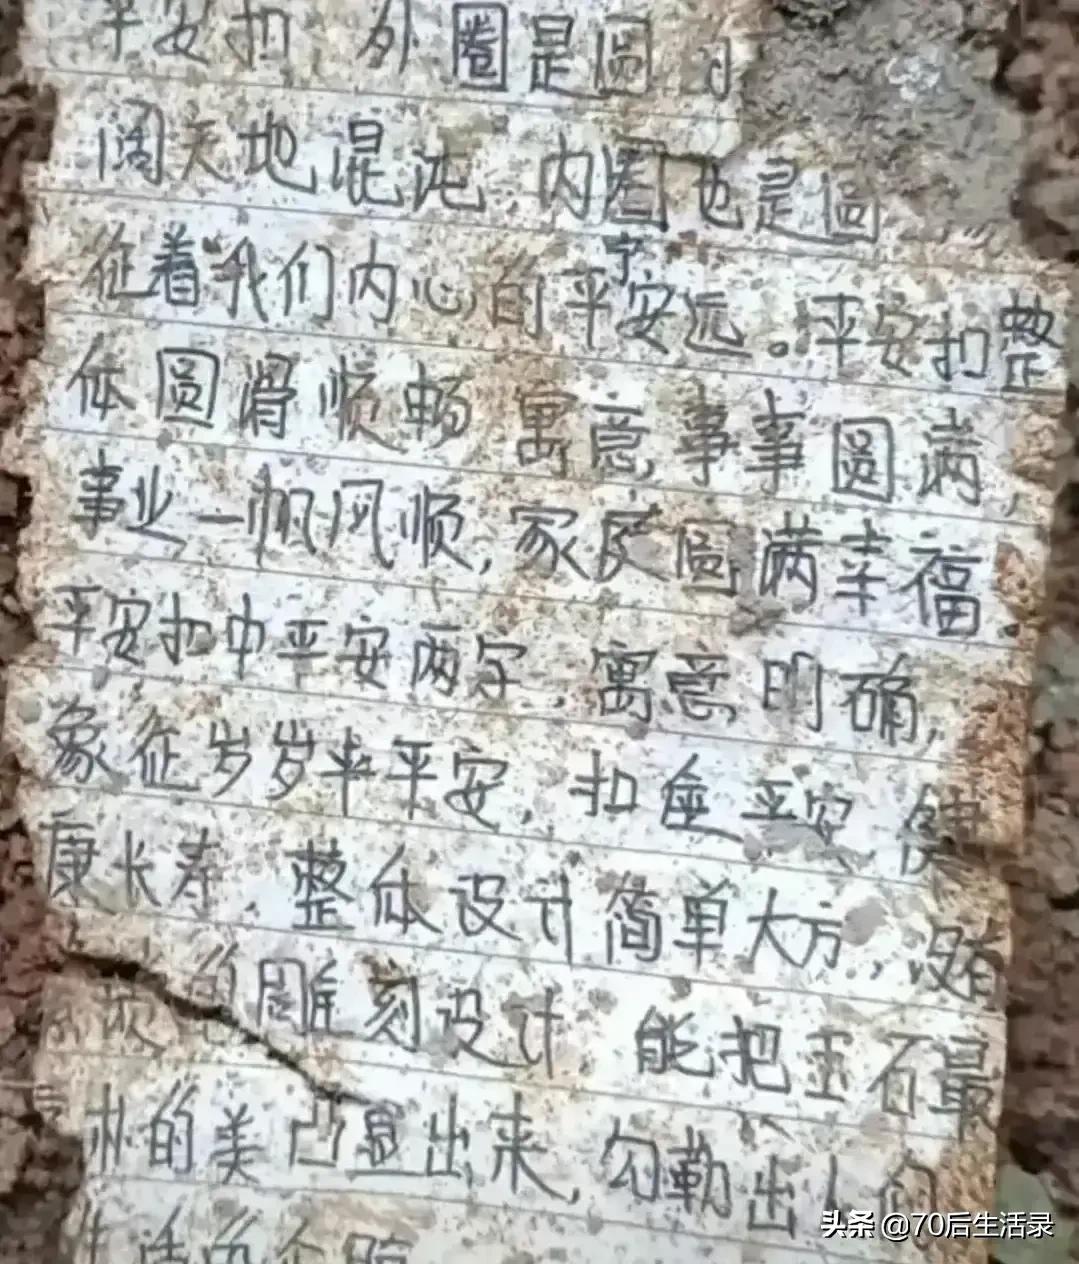 平安扣 外圈是圆
阔天地混沌,内圈也是圆
征着我们内心的平安宁远。平安扣整
体圆滑顺畅 寓意事事圆满,
事业一帆风顺,家庭圆满幸福。
平安扣中平安两字,寓意明确,
象征岁岁平平安,扣住平安 健
康长寿,整体设计简单大方,没有
雕刻设计 能把玉石最
的美凸显出来,勾勒出人们
头条 @70后生活录